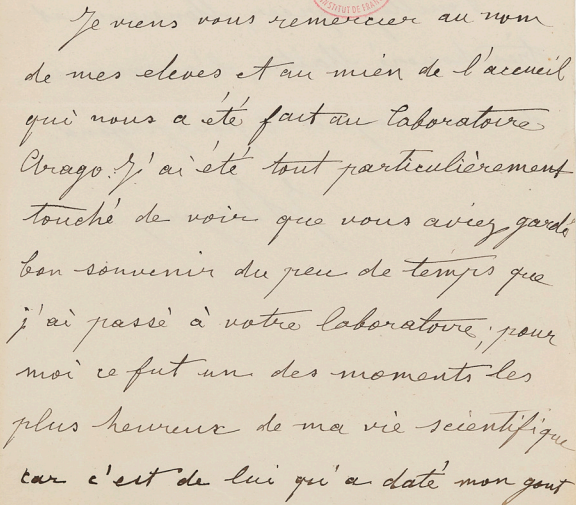 INSTITUT DE FRAN
Je viens vous remercier au nom
de mes eleves et au mien de l'accueil
qui nous a été fait au laboratoire
Arago. J'ai été tout particulièrement
touché de voir que vous aviez gardé
bon souvenir du peu de temps que
j'ai passé à votre laboratoire; pour
moi ce fut un des moments les
plus heureux de ma vie scientifique
car c'est de lui qu'a daté mon gout